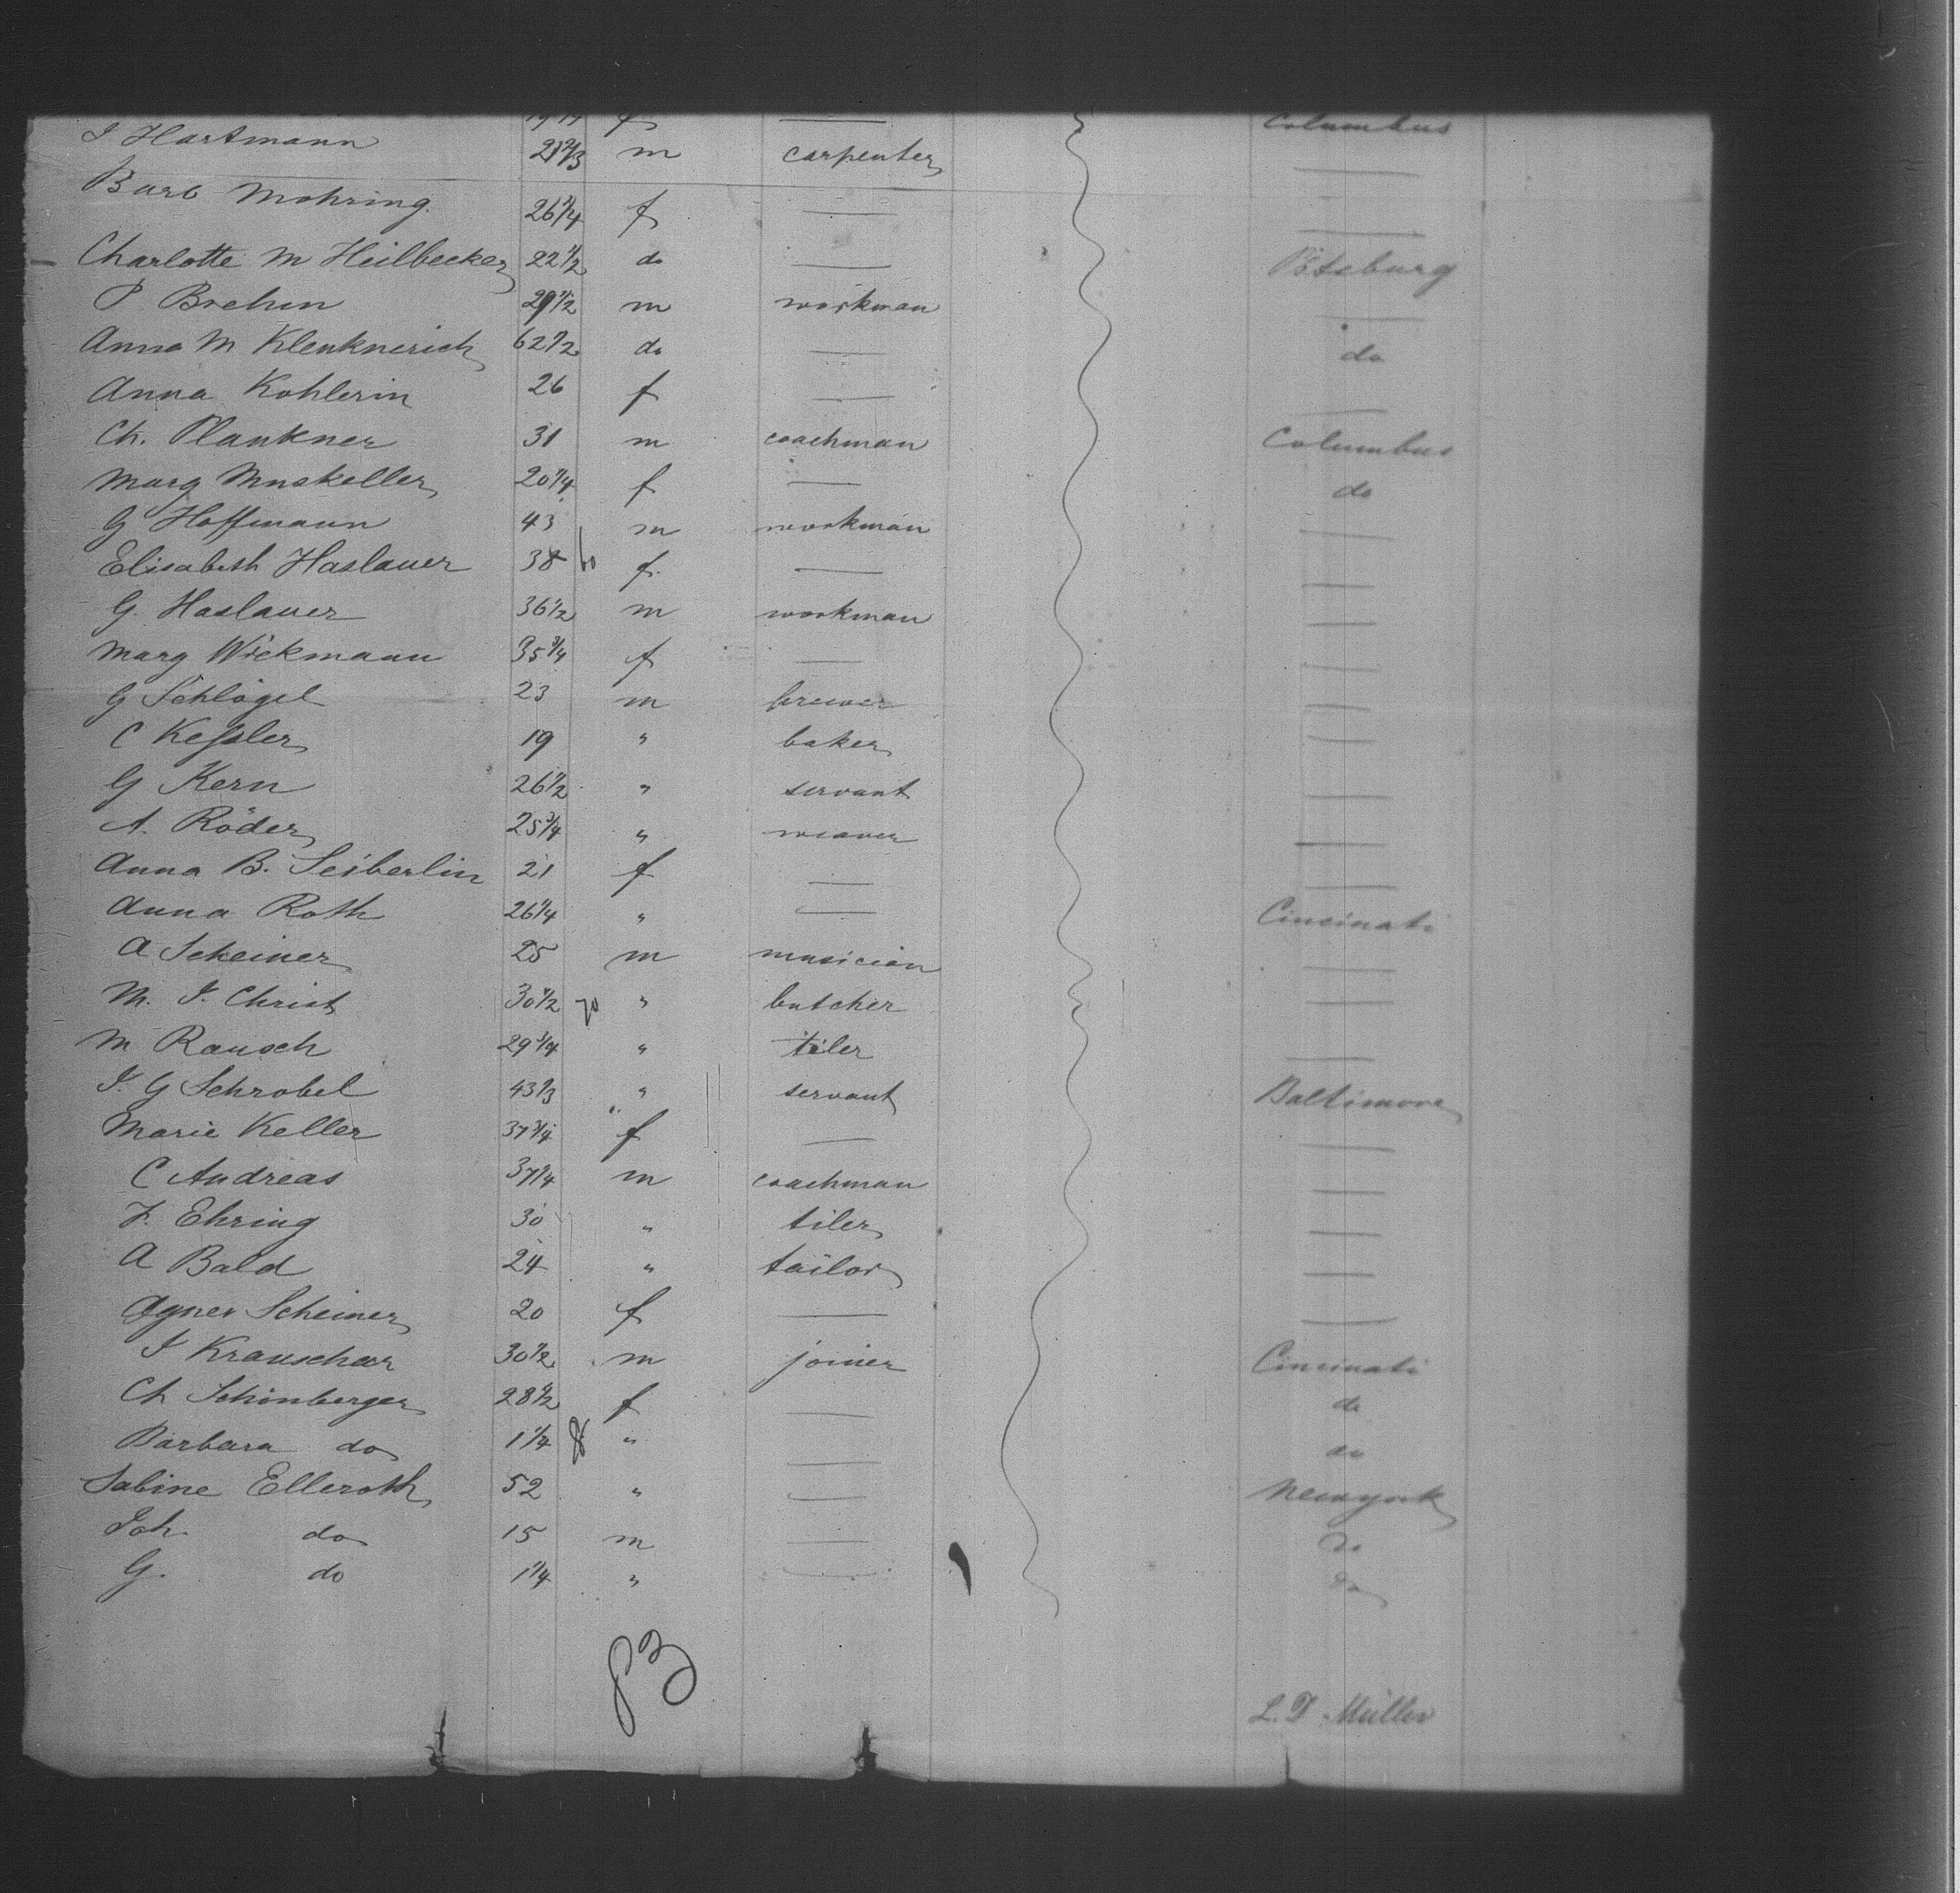 f — Columbus
J Hartmann 21 2/3 m carpenter —
Barb Mohring. 26 1/4 f — —
Charlotte M Heilbecker 22 1/2 do — Pitsburg
P. Brehm 29 1/2 m workman —
Anna M Klenknerich 62 1/2 do — do
Anna Kohlerin 26 f — —
Ch. Plankner 31 m coachman Columbus
Marg Muskeller 20 1/4 f — do
G Hoffmann 43 m workman —
Elisabeth Haslauer 38 60 f. — —
G. Haslauer 36 1/2 m workman —
Marg Wickmann 35 3/4 f — —
G Schlögel 23 m brewer —
C Keßler 19 " baker —
G Kern 26 1/2 " servant —
A. Röder 25 3/4 " weaver —
Anna B. Seiberlin 21 f — —
Anna Roth 26 1/4 " — Cincinati
A Scheiner 25 m musician —
M. J. Christ 30 1/2 70 " butcher —
M Rausch 29 3/4 " tiler —
J. G Schrobel 43 1/3 " servant Baltimore
Marie Keller 37 3/4 " f — —
C Andreas 37 1/4 m coachman —
J. Ehring 30 " tiler —
A Bald 24 " tailor —
Agnes Scheiner 20 f — —
J Krauschaar 30 1/2 m joiner Cincinati
Ch Schönberger 28 1/2 f — do
Barbara do 1 1/4 " — do
Sabine Elleroth 52 " — Newyork
Joh. do 15 m — do
G. do 1 1/4 " — do
83
L. D. Müller